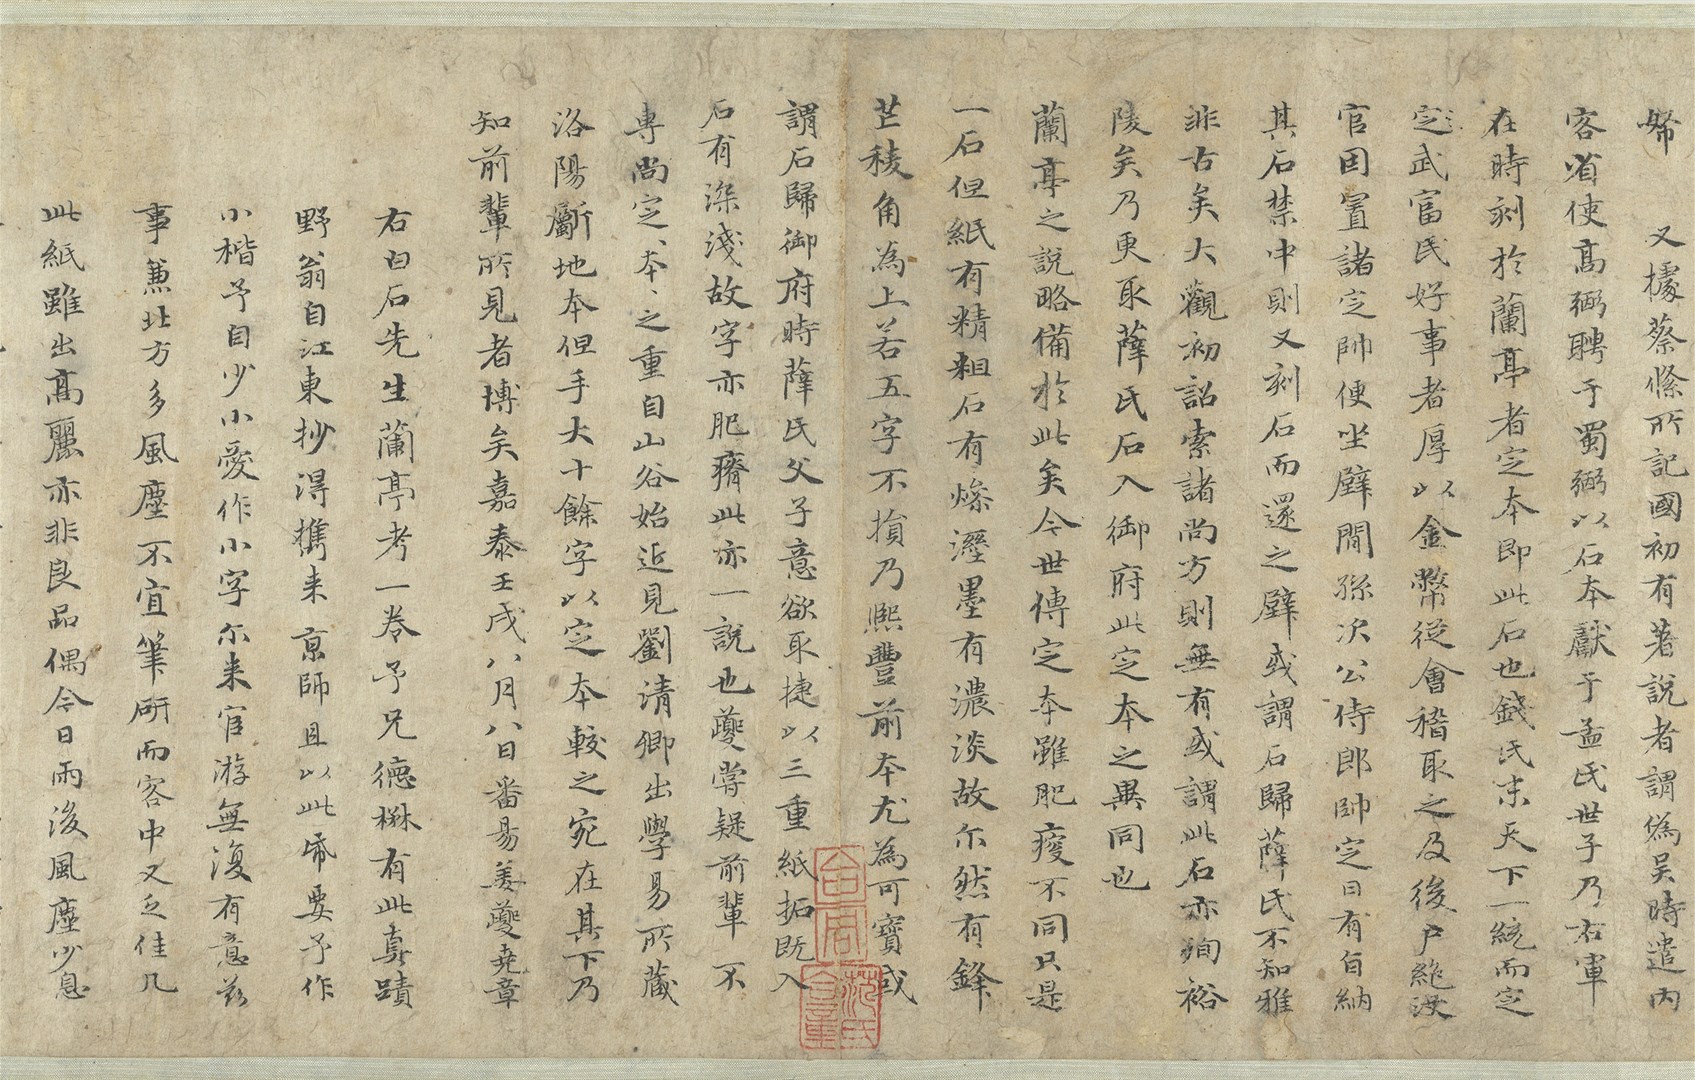 帋
又據蔡絛所記國初有著說者謂偽吳時遣内
客省使高弼聘于蜀弼以石本獻于孟氏世子乃右軍
在時刻於蘭亭者定本即此石也錢氏末天下一統而定
定武富民好事者厚以金幣從會稽取之及後户絶没
官因置諸定帥便坐壁間孫次公侍郎帥定日有旨納
其石禁中則又刻石而還之壁或謂石歸薛氏不知雅
非古矣大觀初詔索諸尚方則無有或謂此石亦殉裕
陵矣乃更取薛氏石入御府此定本之異同也
蘭亭之說略備於此矣今世傳定本雖肥瘦不同只是
一石但紙有精粗石有燥溼墨有濃淡故尔然有鋒
芒稜角為上若五字不損乃熙豐前本尤為可寶或
謂石歸御府時薛氏父子意欲取捷以三重紙拓既入
石有深淺故字亦肥瘠此亦一說也夔嘗疑前輩不
專尚定本、之重自山谷始近見劉清卿出學易所藏
洛陽斸地本但手大十餘字以定本較之宛在其下乃
知前輩所見者博矣嘉泰壬戌八月八日番昜姜夔堯章
右白石先生蘭亭考一卷予兄德楙有此真蹟
野翁自江東抄得攜来京師且以此帋要予作
小楷予自少小愛作小字尔来官游無復有意兹
事兼北方多風塵不宜筆研而客中又乏佳几
此紙雖出高麗亦非良品偶今日雨後風塵少息